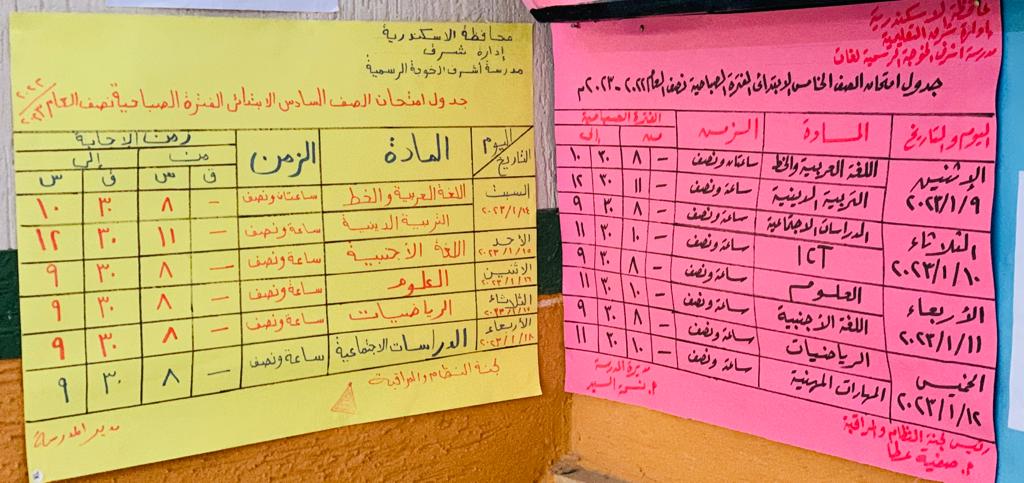 محافظة الاسكندرية
إدارة شرق
مدرسة أشرف الخوجة الرسمية
جدول امتحان الصف السادس الابتدائى الفترة الصباحية نصف العام ٢٠٢٢/٢٠٢٣
اليوم التاريخ المادة الزمن زمن الاجابة
من إلى
ق س ق س
السبت ٢٠٢٣/١/١٤ اللغة العربية والخط ساعتان ونصف – ٨ ٣٠ ١٠
التربية الدينية ساعة ونصف – ١١ ٣٠ ١٢
الاحد ٢٠٢٣/١/١٥ اللغة الأجنبية ساعة ونصف – ٨ ٣٠ ٩
الاثنين ٢٠٢٣/١/١٦ العلوم ساعة ونصف – ٨ ٣٠ ٩
الثلاثاء ٢٠٢٣/١/١٧ الرياضيات ساعة ونصف – ٨ ٣٠ ٩
الأربعاء ٢٠٢٣/١/١٨ الدراسات الاجتماعية ساعة ونصف – ٨ ٣٠ ٩
لجنة النظام والمراقبة
مدير المدرسة
محافظة الاسكندرية
إدارة شرق التعليمية
مدرسة أشرف الخوجة الرسمية لغات
جدول امتحان الصف الخامس الابتدائى الفترة الصباحية نصف العام ٢٠٢٢ - ٢٠٢٣م
اليوم والتاريخ المادة الزمن الفترة الصباحية
من إلى
الإثنين ٢٠٢٣/١/٩ اللغة العربية والخط ساعتان ونصف – ٨ ٣٠ ١٠
التربية الدينية ساعة ونصف – ١١ ٣٠ ١٢
الثلاثاء ٢٠٢٣/١/١٠ الدراسات الاجتماعية ساعة ونصف – ٨ ٣٠ ٩
ICT ساعة ونصف – ١٠ ٣٠ ١١
الأربعاء ٢٠٢٣/١/١١ العلوم ساعة ونصف – ٨ ٣٠ ٩
اللغة الأجنبية ساعة ونصف – ١٠ ٣٠ ١١
الخميس ٢٠٢٣/١/١٢ الرياضيات ساعة ونصف – ٨ ٣٠ ٩
المهارات المهنية ساعة ونصف – ١٠ ٣٠ ١١
مديرة المدرسة
أ. نسمة السيد
رئيس لجنة النظام والمراقبة
أ. صفية عطا